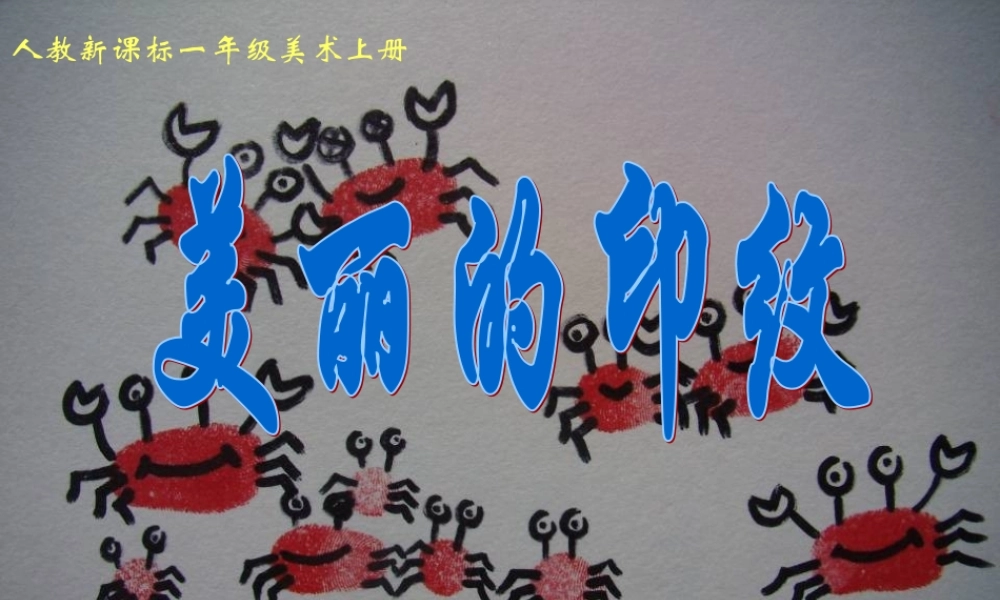 人教新课标一年级美术上册
美丽的印纹